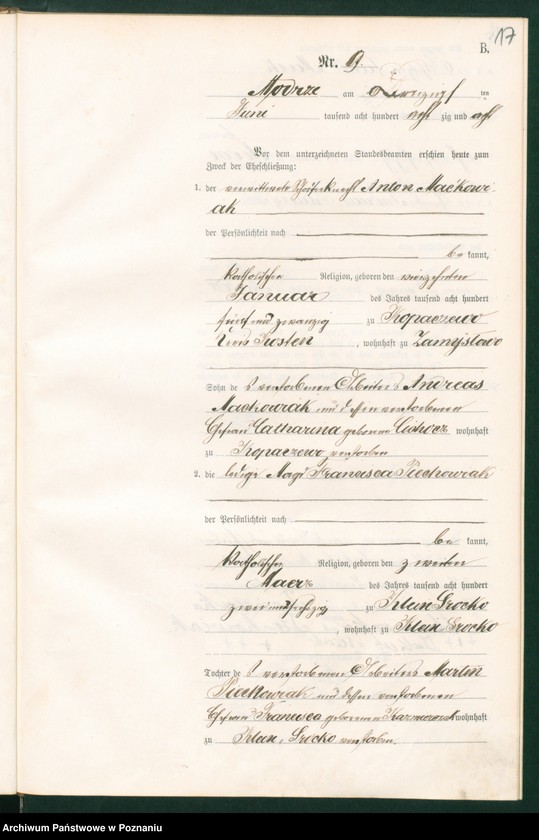 17
B.
Nr. 9.
Modrze am ten
Juni tausend acht hundert acht zig und acht
Vor dem unterzeichneten Standesbeamten erschien heute zum
Zweck der Eheschließung:
1. der verwittwete Schäferknecht Anton Maćkowi-
ak
der Persönlichkeit nach
be kannt,
katholischer Religion, geboren den vierzehnten
Januar des Jahres tausend acht hundert
fünf und zwanzig zu Kopaczewo
Kreis Kosten, wohnhaft zu Zamysłowo
Sohn des verstorbenen Arbeiters Andreas
Maćkowiak und dessen verstorbenen
Ehefrau Catharina geborene wohnhaft
zu Kopaczewo verstorben
2. die ledige Magd Francisca Pieckowiak
der Persönlichkeit nach
be kannt,
katholischer Religion, geboren den zweiten
Maerz des Jahres tausend acht hundert
zwei und sechzig zu Klein Srocko
, wohnhaft zu Klein Srocko
Tochter des verstorbenen Arbeiters Martin
Pieckowiak und dessen verstorbenen
Ehefrau Francisca geborenen wohnhaft
zu Klein Srocko verstorben.
Archiwum Państwowe w Poznaniu